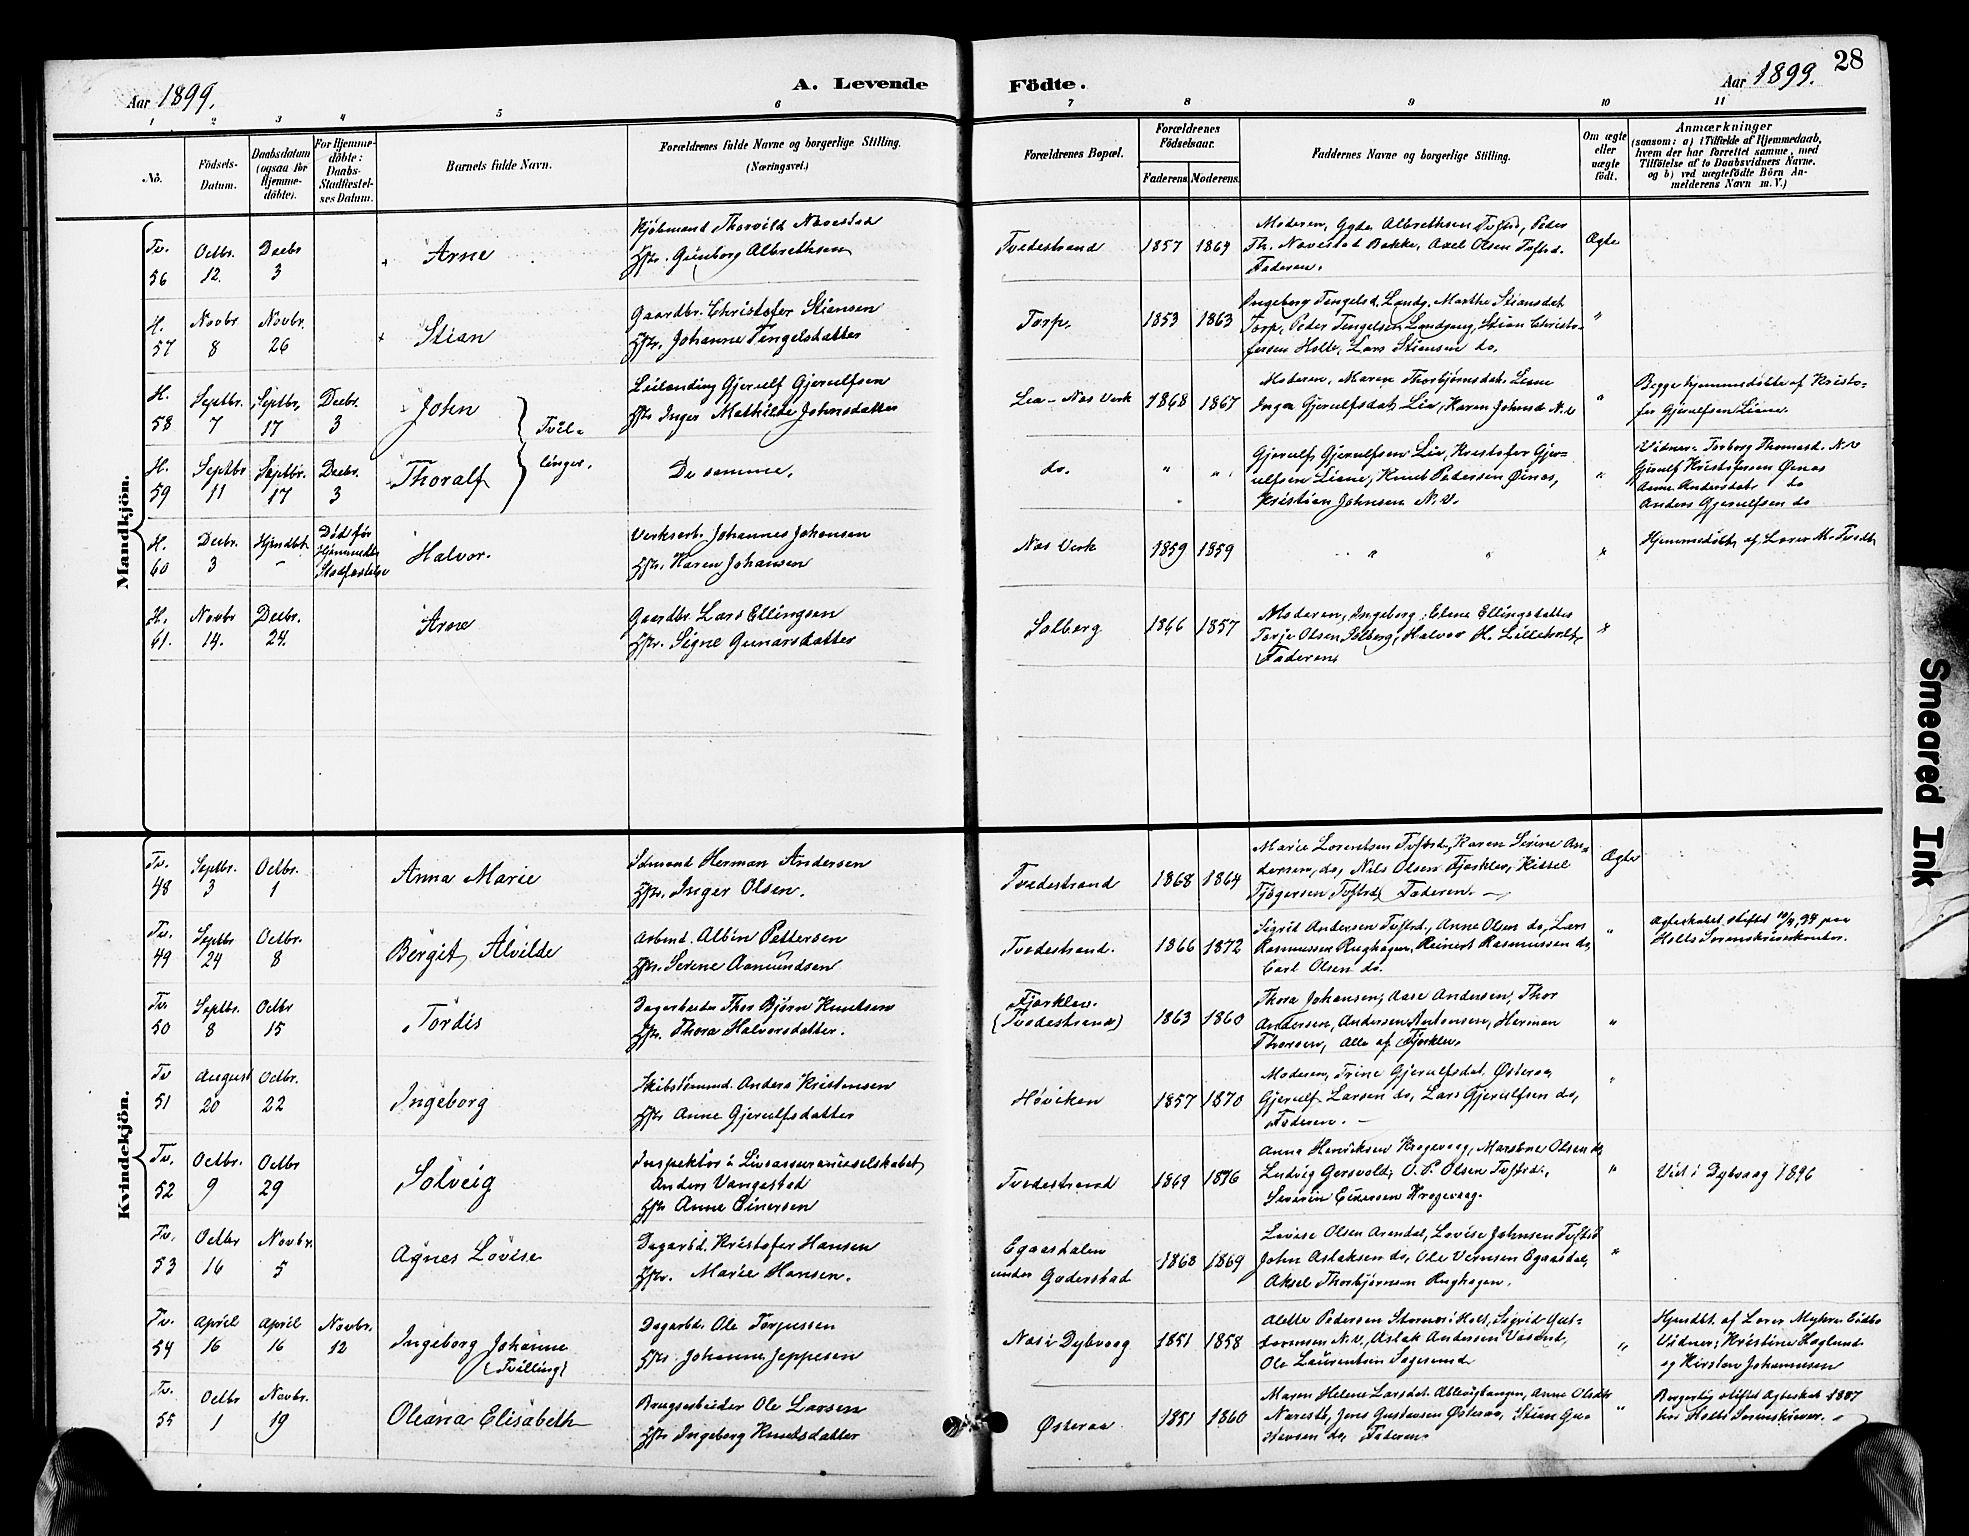 28
Aar 1899.
A. Levende Födte.
Aar 1899.
1 2 3 4 5 6 7 8 9 10 11
No.
Födsels-
Datum.
Daabsdatum
(ogsaa for
Hjemme-
döbte).
For Hjemme-
döbte:
Daabs-
Stadfæstel-
ses Datum.
Barnets fulde Navn.
Forældrenes fulde Navne og borgerlige Stilling.
(Næringsvei.)
Forældrenes Bopæl.
Forældrenes
Födselsaar.
Faderens. Moderens.
Faddernes Navne og borgerlige Stilling.
Om ægte
eller
uægte
födt.
Anmærkninger
(saasom: a) i Tilfælde af Hjemmedaab,
hvem der har forrettet samme, med
Tilföielse af to Daabsvidners Navne.
og b) ved uægtefödte Börn An-
melderens Navn m. V.)
Mandkjön.
Tv.
56
Octbr.
12.
Decbr
3
Arne
Kjøbmand Thorvild Navestad
Hstr. Gunborg Albrethsen
Tvedestrand
1857
1864
Moderen, Albrethsen Tvstrd, Peder
Th. Navestad Bakke, Axel Olsen Tvstrd.
Faderen.
Ægte
H.
57
Novbr
8
Novbr.
26
Stian
Gaardbr. Christofer Stiansen
Hstr. Johanne Tengelsdatter
Torp.
1853
1863
Ingeborg Tengelsd. Landg. Marthe Stiansdat
Torp, Peder Tengelsen Landgang, Stian Christo-
fersen Holte, Lars Stiansen do.
"
H.
58
Septbr.
7
Septbr.
17
Decbr.
3
John
Tvil-
Leilending Gjerulf Gjerulfsen
Hstr Inger Mathilde Johnsdatter
Lia - Næs Verk
1868
1867
Moderen, Maren Thorbjørnsdat. Liane
Inga Gjerulfsdat, Lia, Karen Johnsd N.v
"
Begge hjemmedøbte af Kristo-
fer Gjerulfsen Liane.
H.
59
Septbr
11
Septbr.
17
Decbr.
3
Thoralf
linger.
De samme.
do.
" "
Gjerulf Gjerulfsen Lia, Kristofer Gjer-
ulfsen Liane, Knut Pedersen Øinas,
Kristian Johnsen N.V.
"
Vidner: Torborg Thomasd. N.V
Gjerulf Kristofersen Øinas
Anne Andersdatr do
Anders Gjerulfsen do
H.
60
Decbr.
3
Hjemdbt.
Død før
Hjemmedbs
Stadfæstelse
Halvor.
Verksarb. Johannes Johansen
Hstr. Karen Johansen
Næs Verk
1859
1859
" "
Hjemmedøbt af Lærer M. Tvedt
H.
61.
Novbr
14.
Decbr.
24.
Arne
Gaardbr Lars Ellingsen
Hstr. Signe Gunarsdatter
Solberg
1866
1857
Moderen, Ingeborg Elene Ellingsdatter
Torje Olsen Solberg, Halvor H. Lilleholt,
Faderen
Kvindekjön.
Tv.
48
Septbr.
3
Octbr.
1
Anna Marie
Sømand Herman Andersen
Hstr. Inger Olsen.
Tvedestrand
1868
1864
Marie Lorentsen Tvstrd, Karen Serine An-
dersen, do, Nils Olsen Fjærklev, Kittel
Tjøgersen Tvstrd, Faderen.
Ægte
Tv.
49
Septbr
24
Octbr.
8
Bergit Alvilde
Arbmd. Albin Pettersen
Hstr. Serine Aamundsen
Tvedestrand.
1866
1872
Sigrid Andersen Tvstrd., Anne Olsen do, Lars
Rasmussen Rughagen, Reinert Rasmussen do,
Carl Olsen do.
"
Ægteskabet stiftet 10/4, 94 paa
Holts Sorenskriverkontor.
Tv.
50
Septbr.
8
Octbr
15
Tordis
Dagarbeider Thor Bjørn Knutsen
Hstr. Thora Halvorsdatter.
Fjærklev.
(Tvedestrand)
1863
1860
Thora Johansen, Aase Andersen, Thor
Andersen, Andersen Antonsen, Herman
Thorsen, Alle af Fjærklev.
"
Tv
51
August
20
Octbr.
22
Ingeborg
Skibstømmd. Anders Kristensen
Hstr Anne Gjerulfsdatter
Høviken
1857
1870
Moderen, Trine Gjerulfsdat. Østeraa,
Gjerulf Larsen do, Lars Gjerulfsen do,
Faderen.
"
Tv.
52
Octbr.
9
Octbr
29
Solveig
Inspektør i Livsassuranceselskabet
Anders Vangestad
Hstr Anne Einersen
Tvedestrand
1869
1876
Anna Henriksen Krogevaag, Marthe Olsen do
Ludvig Gersvold, O. P. Olsen Tvstrd.,
Severin Einersen Krogevaag.
"
Viet i Dybvaag 1896
Tv.
53
Octbr
16
Novbr.
5
Agnes Lovise
Dagarbd. Kristofer Hansen
Hstr. Marie Hansen.
Egaasdalen
under Goderstad
1868
1869
Lovise Olsen Arendal, Lovise Johnsen Tvstrd
John Aslaksen do, Ole Vernsen Egaasdal,
Aksel Thorbjørnsen Rughagen.
"
Tv.
54
April
16
April
16
Novbr.
12
Ingeborg Johanne
(Tvilling)
Dagarbd. Ole Terjussen
Hstr Johanne Jeppesen
Næs i Dybvaag
1851
1858
Alette Pedersen i Holt, Sigrid Gut-
tormsen N.v, Aslak Andersen
Ole Laurentsen Sagesund
"
Hjemdbt. af Lærer
Vidner: Kristine Haglund
og Kirsten Johannesen
Tv.
55
Octbr
1
Novbr.
19
Oleana Elisabeth
Brugsarbeider Ole Larsen
Hstr Ingeborg Knutsdatter
Østeraa
1851
1860
Maren Helene Larsdat. Anne Olsdtr
Nareste, Jens Gustavsen Østeraa, Stian Gu-
stavsen do, Faderen
"
Borgerlig stiftet Ægteskab 1887
hos Holts Sorenskriver.
Smeared Ink